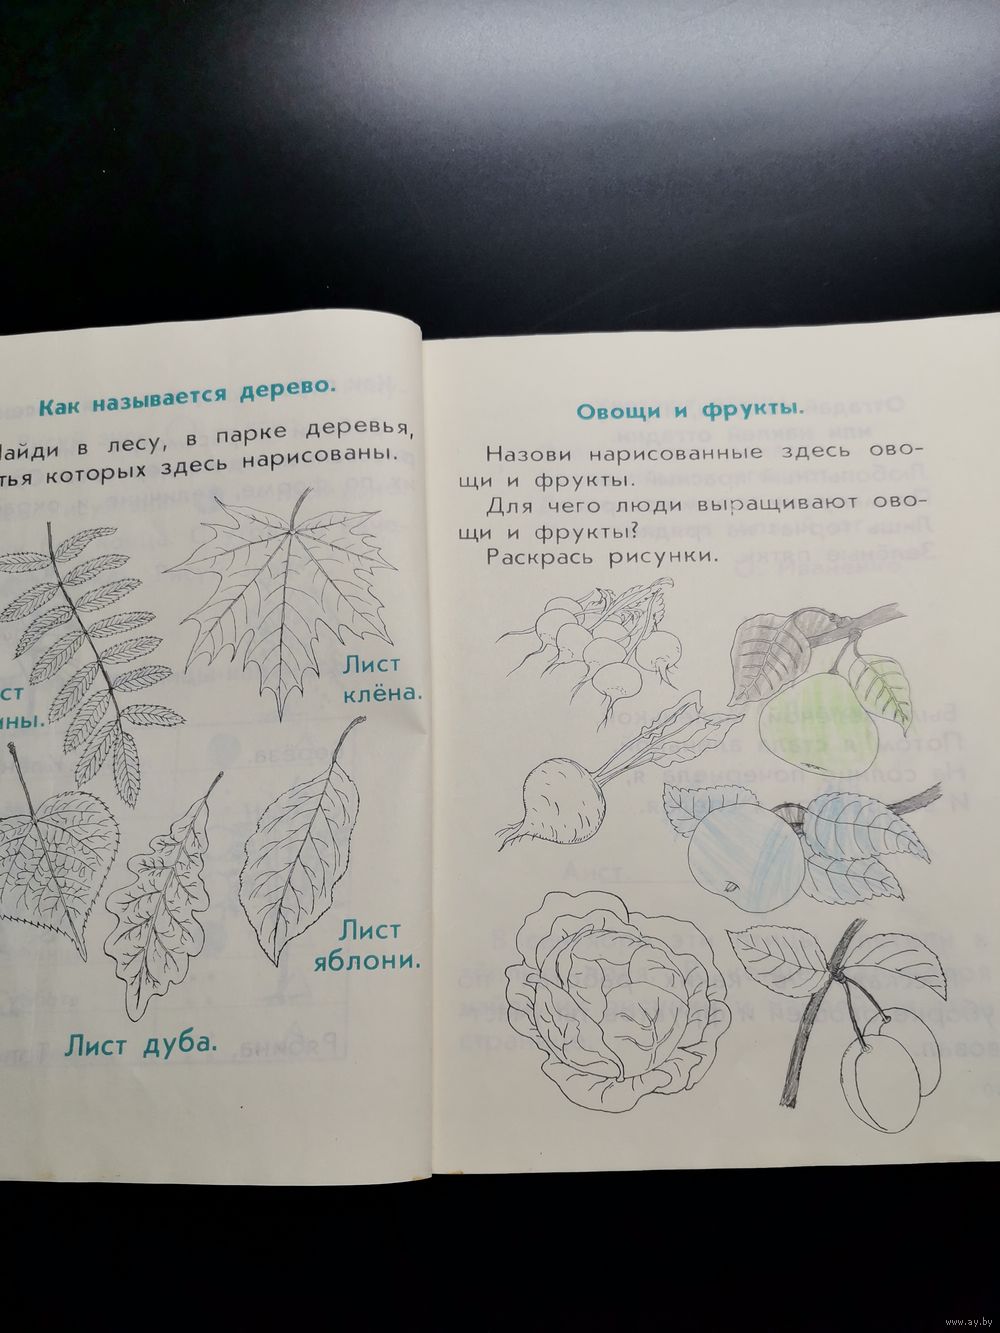 Как называется дерево.
Найди в лесу, в парке деревья,
которых здесь нарисованы.
Лист
клёна.
Лист
яблони.
Лист дуба.
Овощи и фрукты.
Назови нарисованные здесь ово-
щи и фрукты.
Для чего люди выращивают ово-
щи и фрукты?
Раскрась рисунки.
www.ay.by